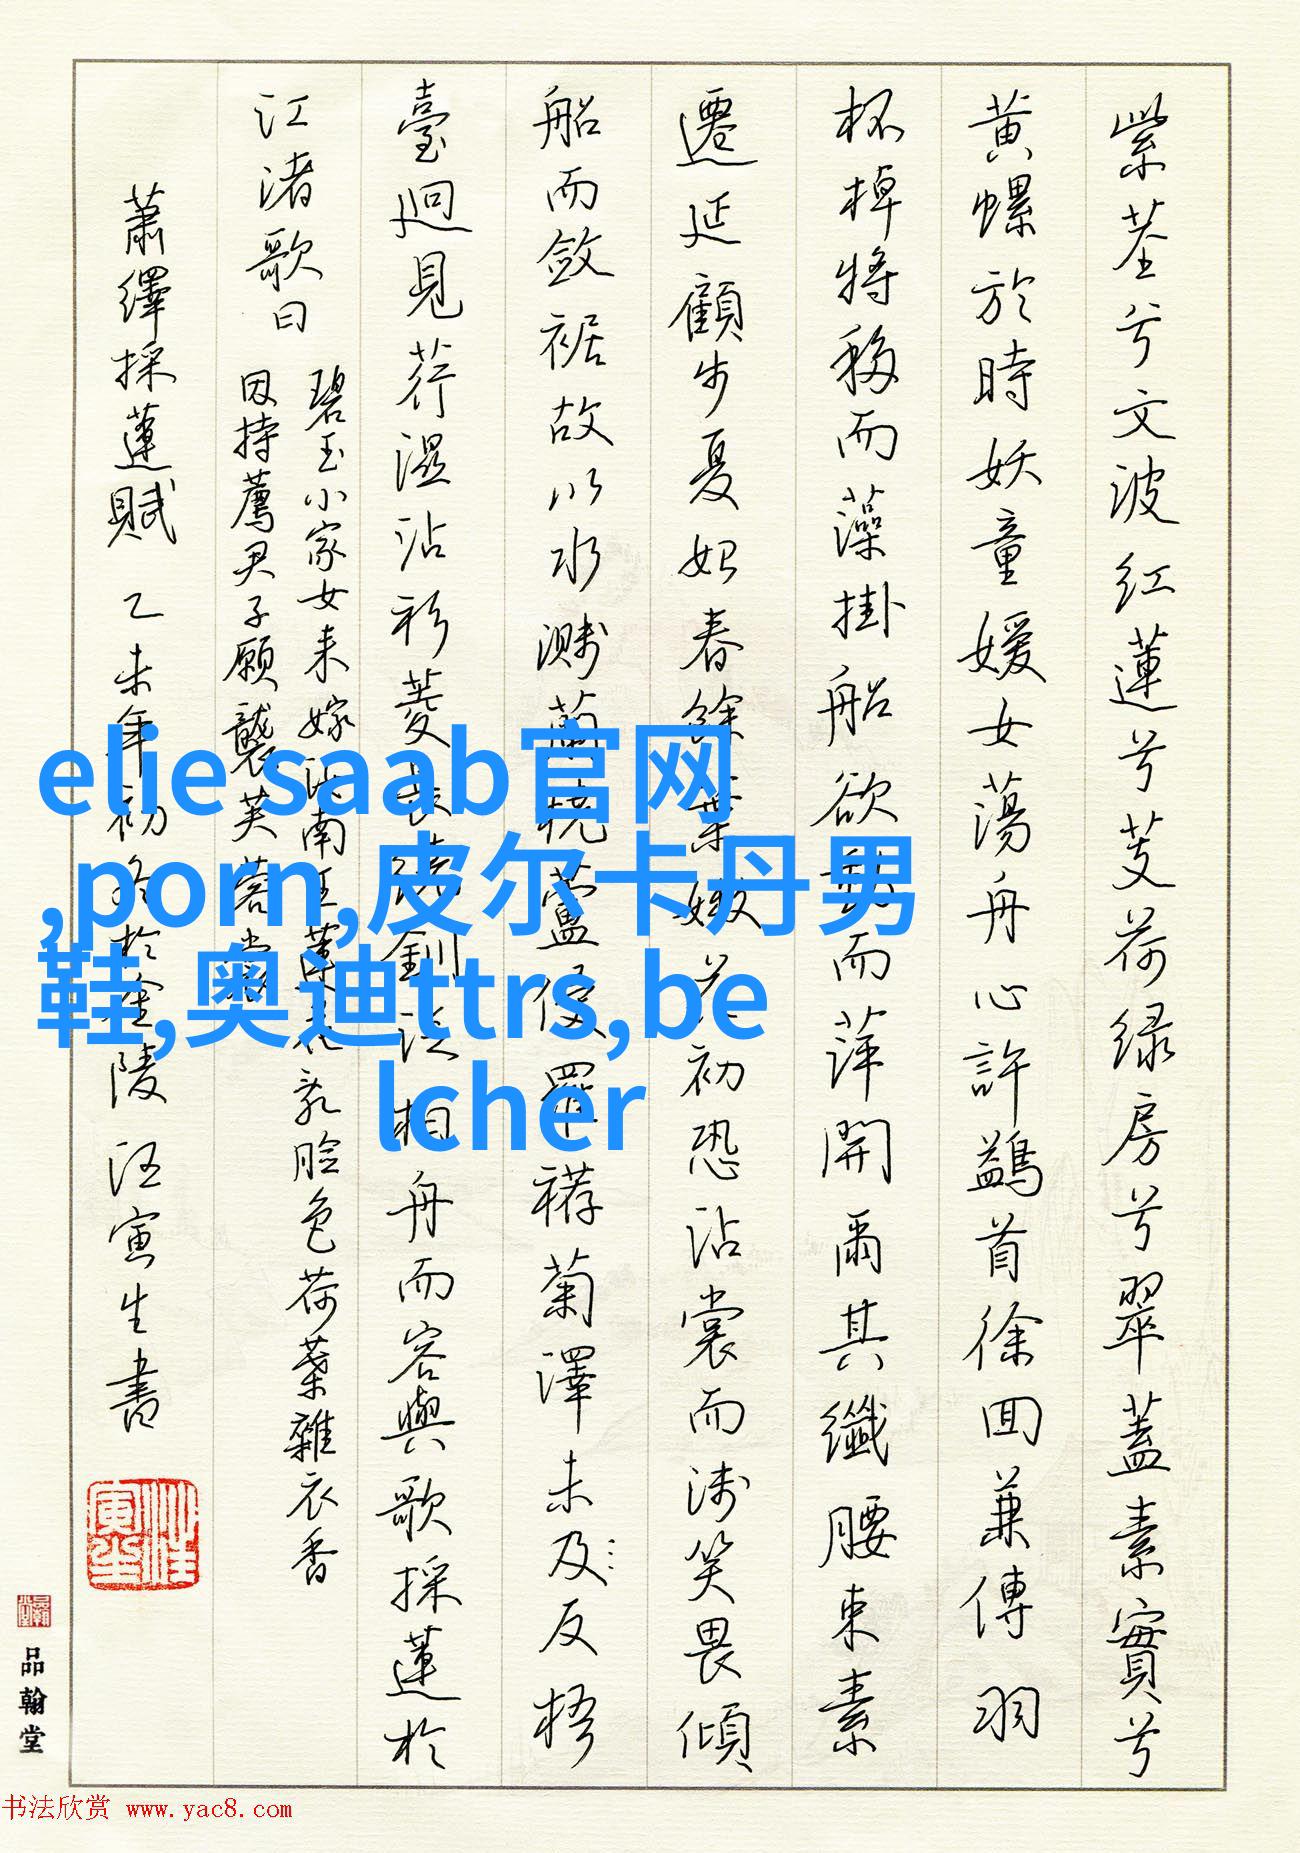 紫茎兮文波红蓮兮芰荷绿房兮翠蓋素實兮
黄螺於時妖童媛女蕩舟心許鷁首徐回兼傳羽
杯棹将移而藻掛船欲動而萍開爾其纖腰束素
遷延顧步夏始春餘葉嫩花初恐沾裳而浅笑畏傾
船而斂裾故以水濺蘭橈蘆侵羅䙓菊澤未及反梧
臺迥見荇濕沾衫菱長繞釧泛柏舟而容與歌採蓮於
江渚歌曰
碧玉小家女来嫁汝南王蓮花乱臉色荷葉雜衣香
因持薦君子願襲芙蓉裳
蕭繹採蓮賦 乙未年初冬於金陵 汪寅生書
汪寅生
品翰堂
elie saab官网
,porn,皮尔卡丹男
鞋,奥迪ttrs,be
lcher
书法欣赏 www.yac8.com